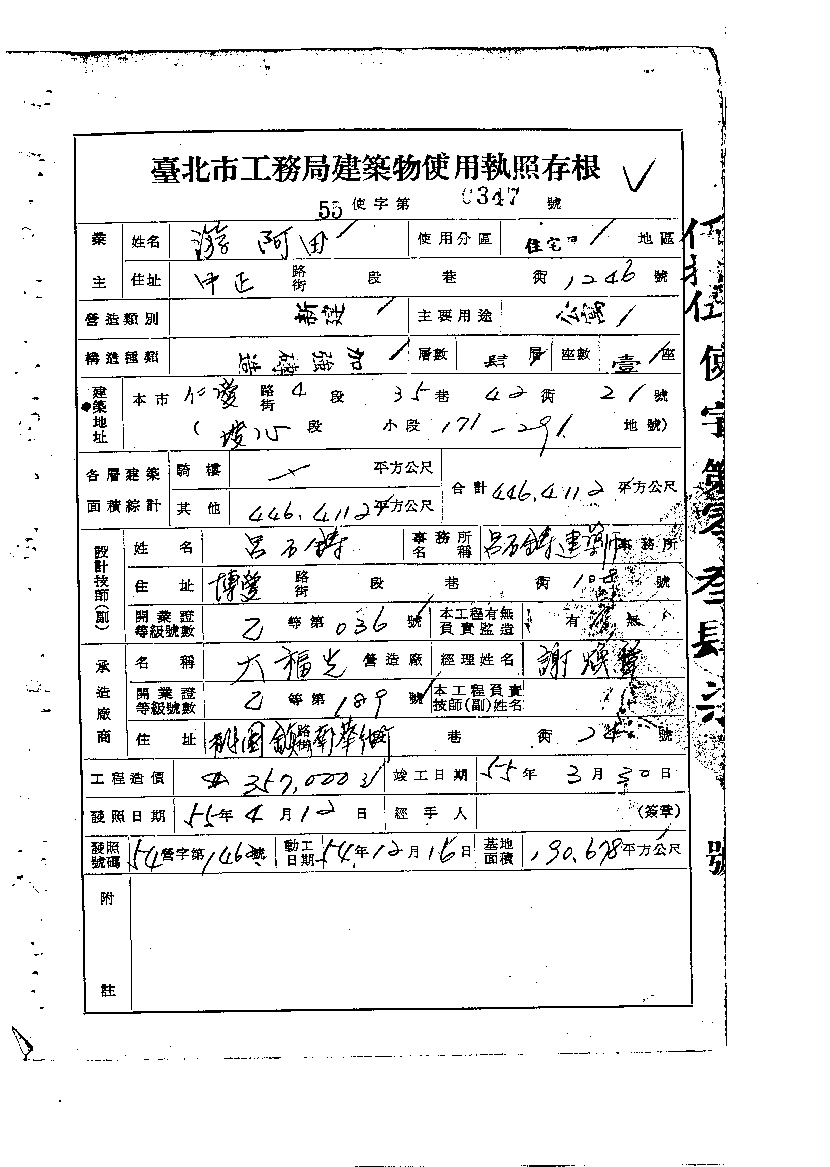 臺北市工務局建築物使用執照存根
55 使字第 0347 號
業主 姓名 游阿田 使用分區 住宅 地區
住址 中正 路街 段 巷 衖 1246 號
營造類別 新建 主要用途 公寓
構造種類 加強磚造 層數 肆層 座數 壹座
建築地址 本市 仁愛 路街 4 段 35 巷 42 衖 21 號
(埤心 段 小段 171-291 地號)
各層建築面積綜計 騎樓 平方公尺 合計 446.4112 平方公尺
其他 446.4112 平方公尺
設計技師(副) 姓名 呂石鑄 事務所名稱 呂石鑄建築師事務所
住址 博愛 路街 段 巷 衖 108 號
開業證等級號數 乙 等第 036 號 本工程有無負責監造 有 無
承造廠商 名稱 大福光 營造廠 經理姓名 謝
開業證等級號數 乙 等第 189 號 本工程負責技師(副)姓名
住址 桃園鎮 南華街 巷 衖 24 號
工程造價 357,000 竣工日期 55年 3月 30日
發照日期 55年 4月 12日 經手人 (簽章)
發照號碼 54營字第1462號 動工日期 54年12月16日 基地面積 190.678平方公尺
附註
伍拾伍使字第零叁肆柒號